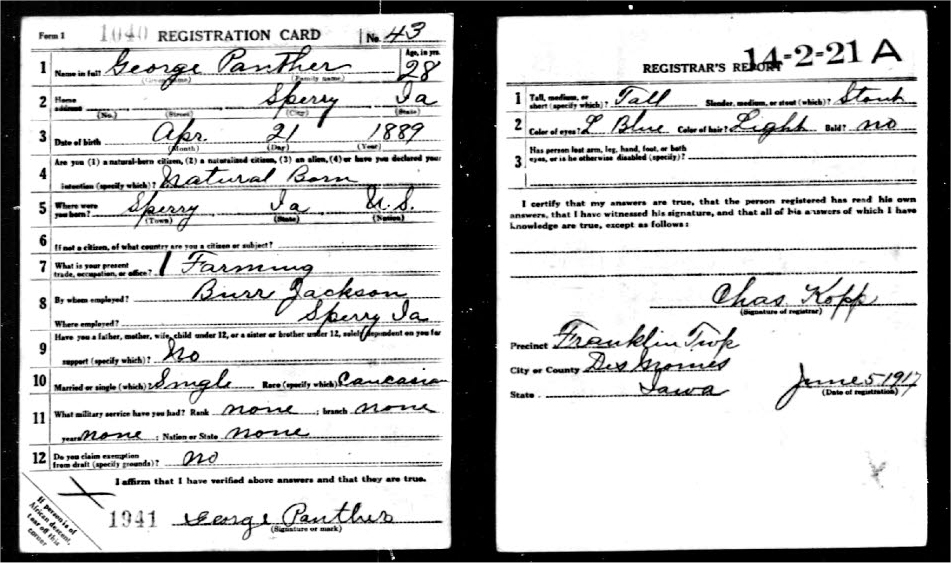 Form 1 1040 REGISTRATION CARD No. 43
1 Name in full George Panther Age, in yrs. 28
(Given name) (Family name)
2 Home address Sperry Ia
(No.) (Street) (City) (State)
3 Date of birth Apr. 21 1889
(Month) (Day) (Year)
4 Are you (1) a natural-born citizen, (2) a naturalized citizen, (3) an alien, (4) or have you declared your
intention (specify which)? Natural Born
5 Where were you born? Sperry Ia U.S.
(Town) (State) (Nation)
6 If not a citizen, of what country are you a citizen or subject?
7 What is your present trade, occupation, or office? Farming
8 By whom employed? Burr Jackson
Where employed? Sperry Ia
9 Have you a father, mother, wife, child under 12, or a sister or brother under 12, solely dependent on you for
support (specify which)? No
10 Married or single (which)? Single Race (specify which)? Caucasian
11 What military service have you had? Rank none ; branch none
years none ; Nation or State none
12 Do you claim exemption from draft (specify grounds)? no
I affirm that I have verified above answers and that they are true.
1941 George Panther
(Signature or mark)
If person is of
African descent,
tear off this
corner
14-2-21 A
REGISTRAR'S REPORT
1 Tall, medium, or short (specify which)? Tall Slender, medium, or stout (which)? Stout
2 Color of eyes? L Blue Color of hair? Light Bald? no
3 Has person lost arm, leg, hand, foot, or both
eyes, or is he otherwise disabled (specify)?
I certify that my answers are true, that the person registered has read his own
answers, that I have witnessed his signature, and that all of his answers of which I have
knowledge are true, except as follows:
Chas Kopp
(Signature of registrar)
Precinct Franklin Twp
City or County Des Moines
State Iowa June 5-1917
(Date of registration)